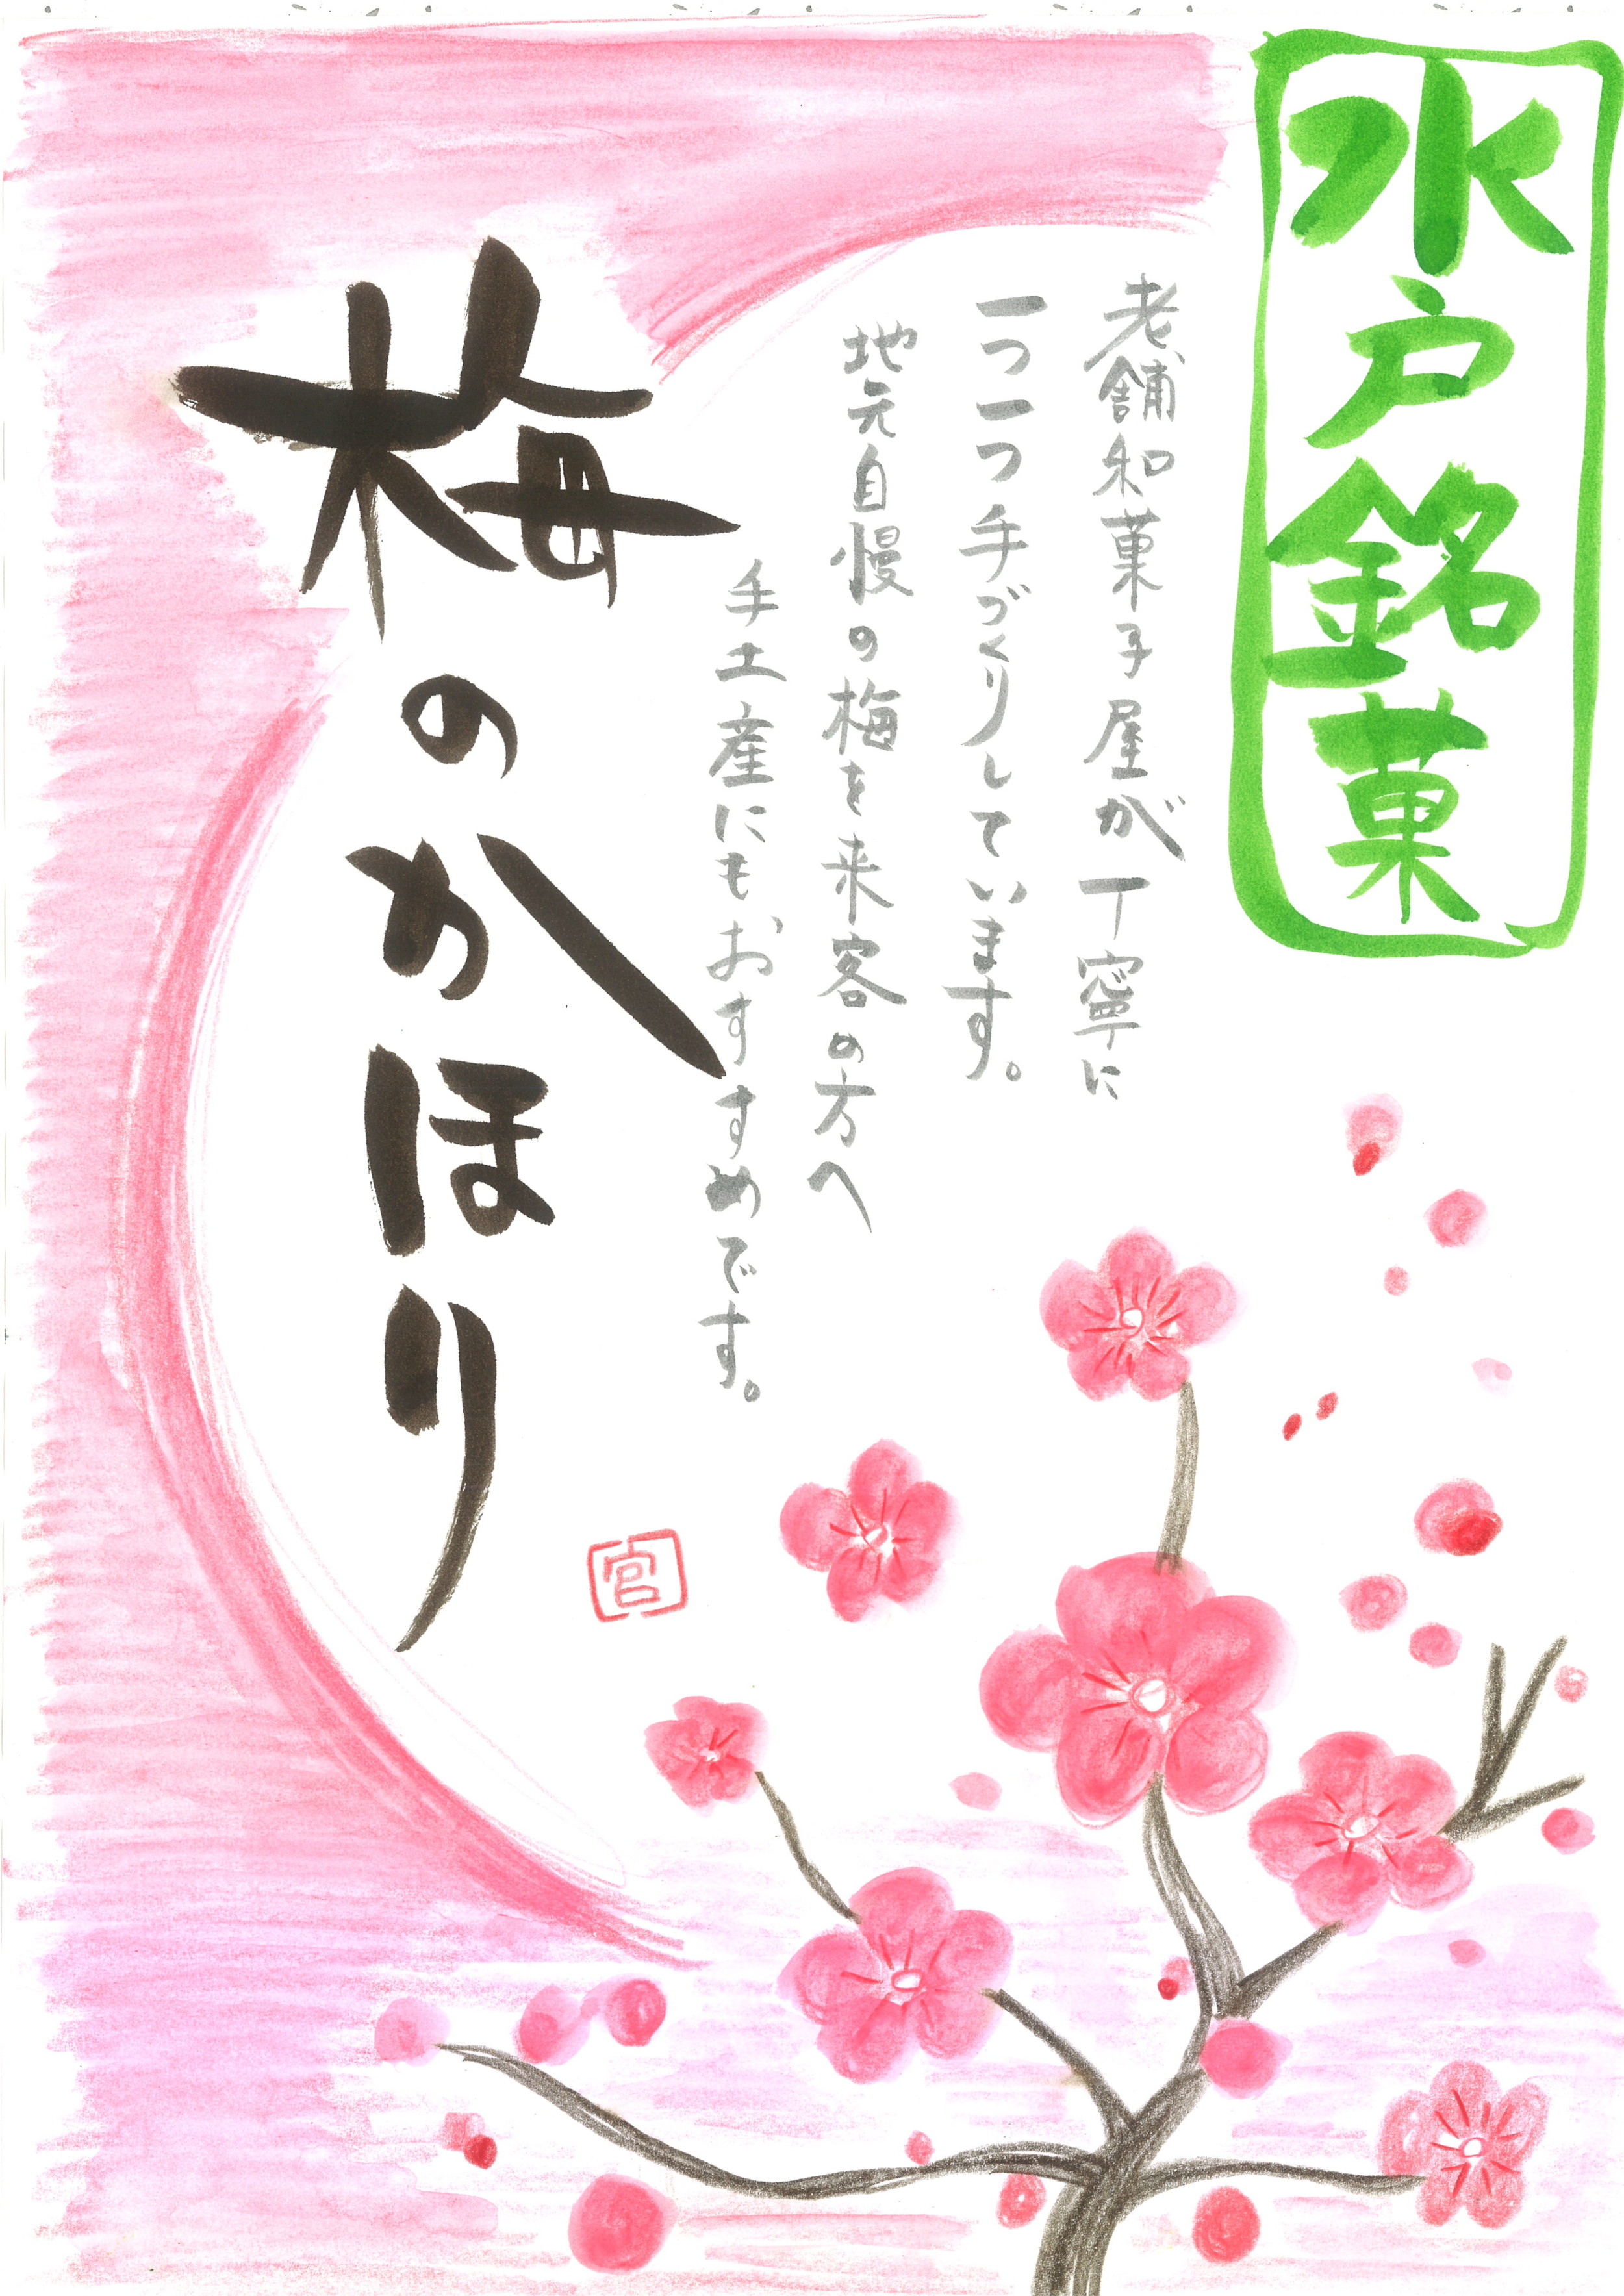 水戸銘菓
老舗和菓子屋が丁寧に
一つ一つ手づくりしています。
地元自慢の梅を来客の方へ
手土産にもおすすめです。
梅のかほり
宮